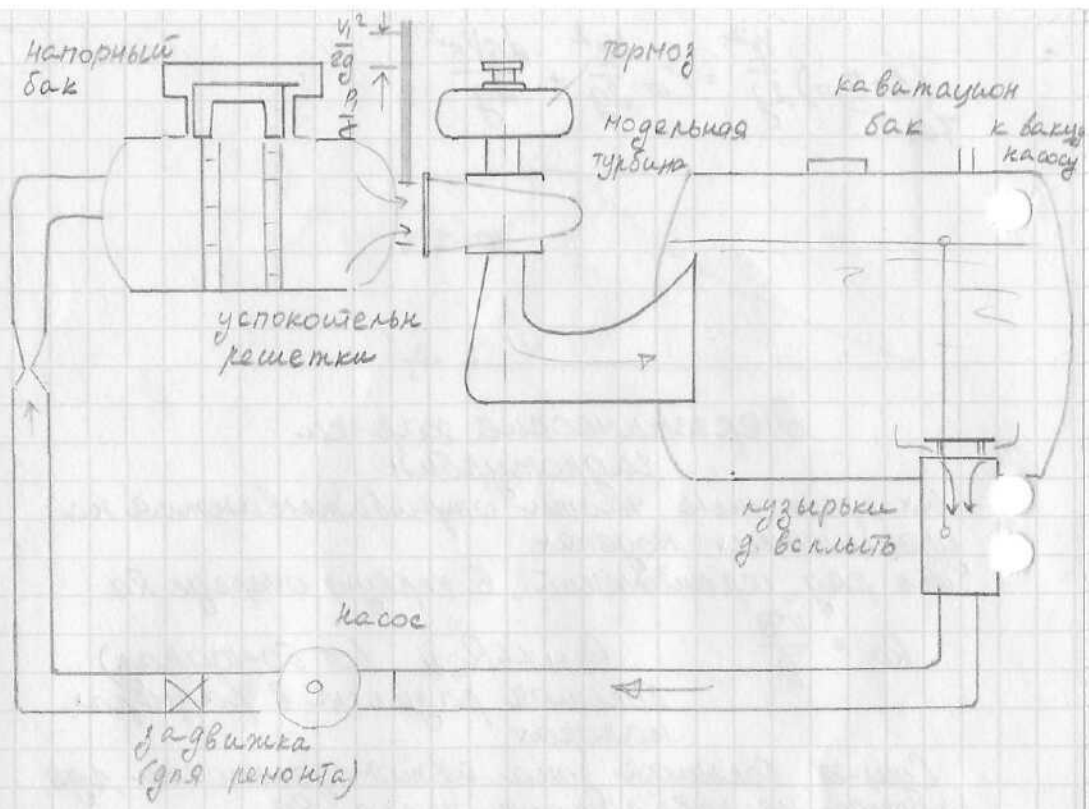 напорный
бак
V₁²
2g
P₁
γ
тормоз
модельная
турбина
каватацион
бак
к вакуу
насосу
успокоительн
решетки
пузырьки
д всплыть
насос
задвижка
(для ремонта)